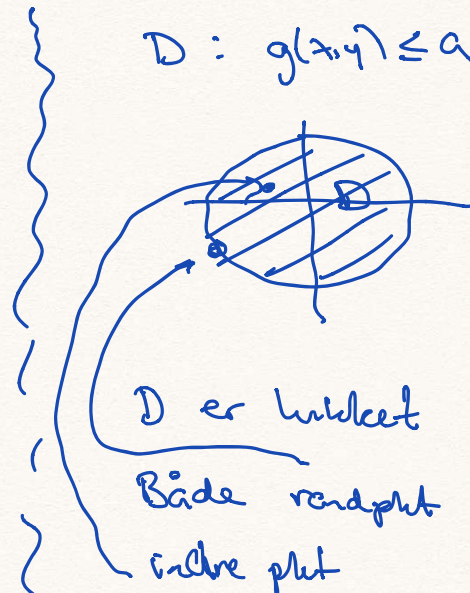 D : g(x,y) ≤ a
D
D er lukket
Både randpkt
indre pkt